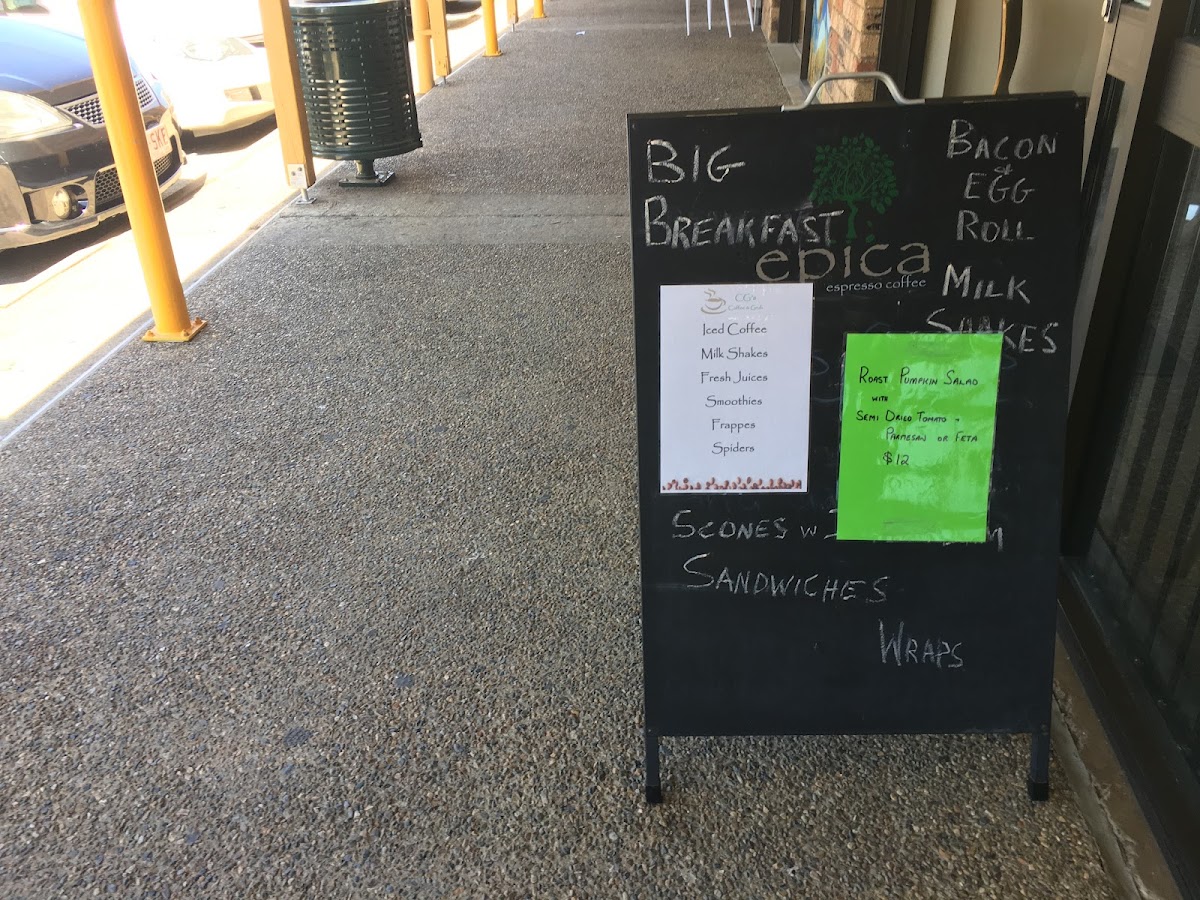 BIG
BREAKFAST
epica
espresso coffee
BACON
&
EGG
ROLL
MILK
SHAKES
Iced Coffee
Milk Shakes
Fresh Juices
Smoothies
Frappes
Spiders
ROAST PUMPKIN SALAD
WITH
SEMI DRIED TOMATO +
PARMESAN OR FETA
$12
SCONES W
SANDWICHES
WRAPS
SKF